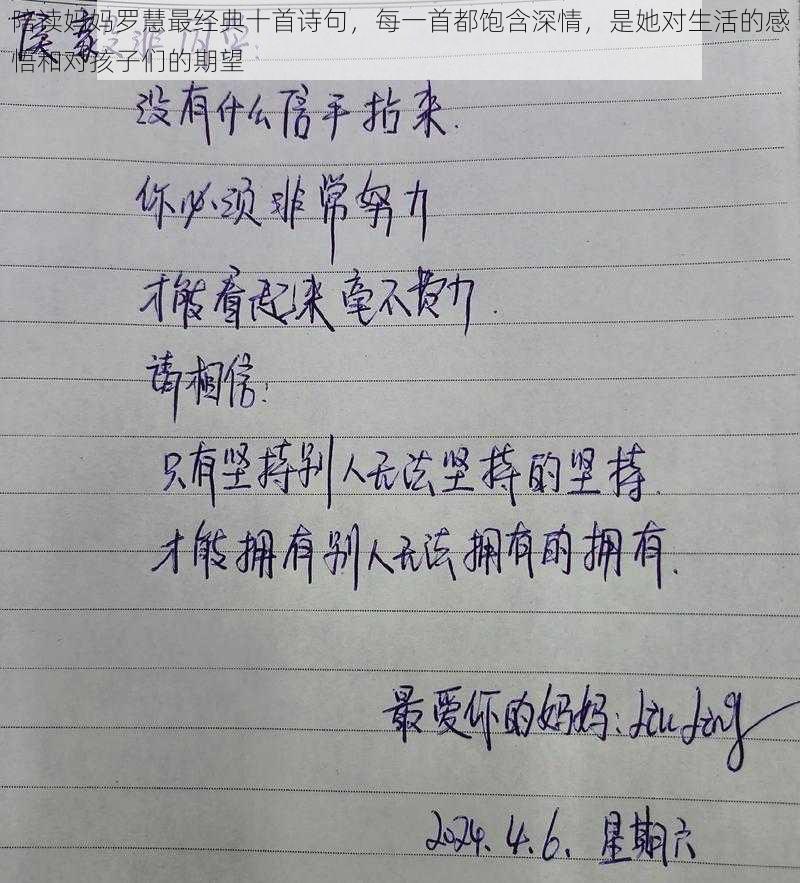 陪读妈妈罗慧最经典十首诗句，每一首都饱含深情，是她对生活的感
悟和对孩子们的期望
没有什么信手拈来.
你必须非常努力
才能看起来毫不费力.
请相信:
只有坚持别人无法坚持的坚持.
才能拥有别人无法拥有的拥有.
最爱你的妈妈:
2024.4.6. 星期六